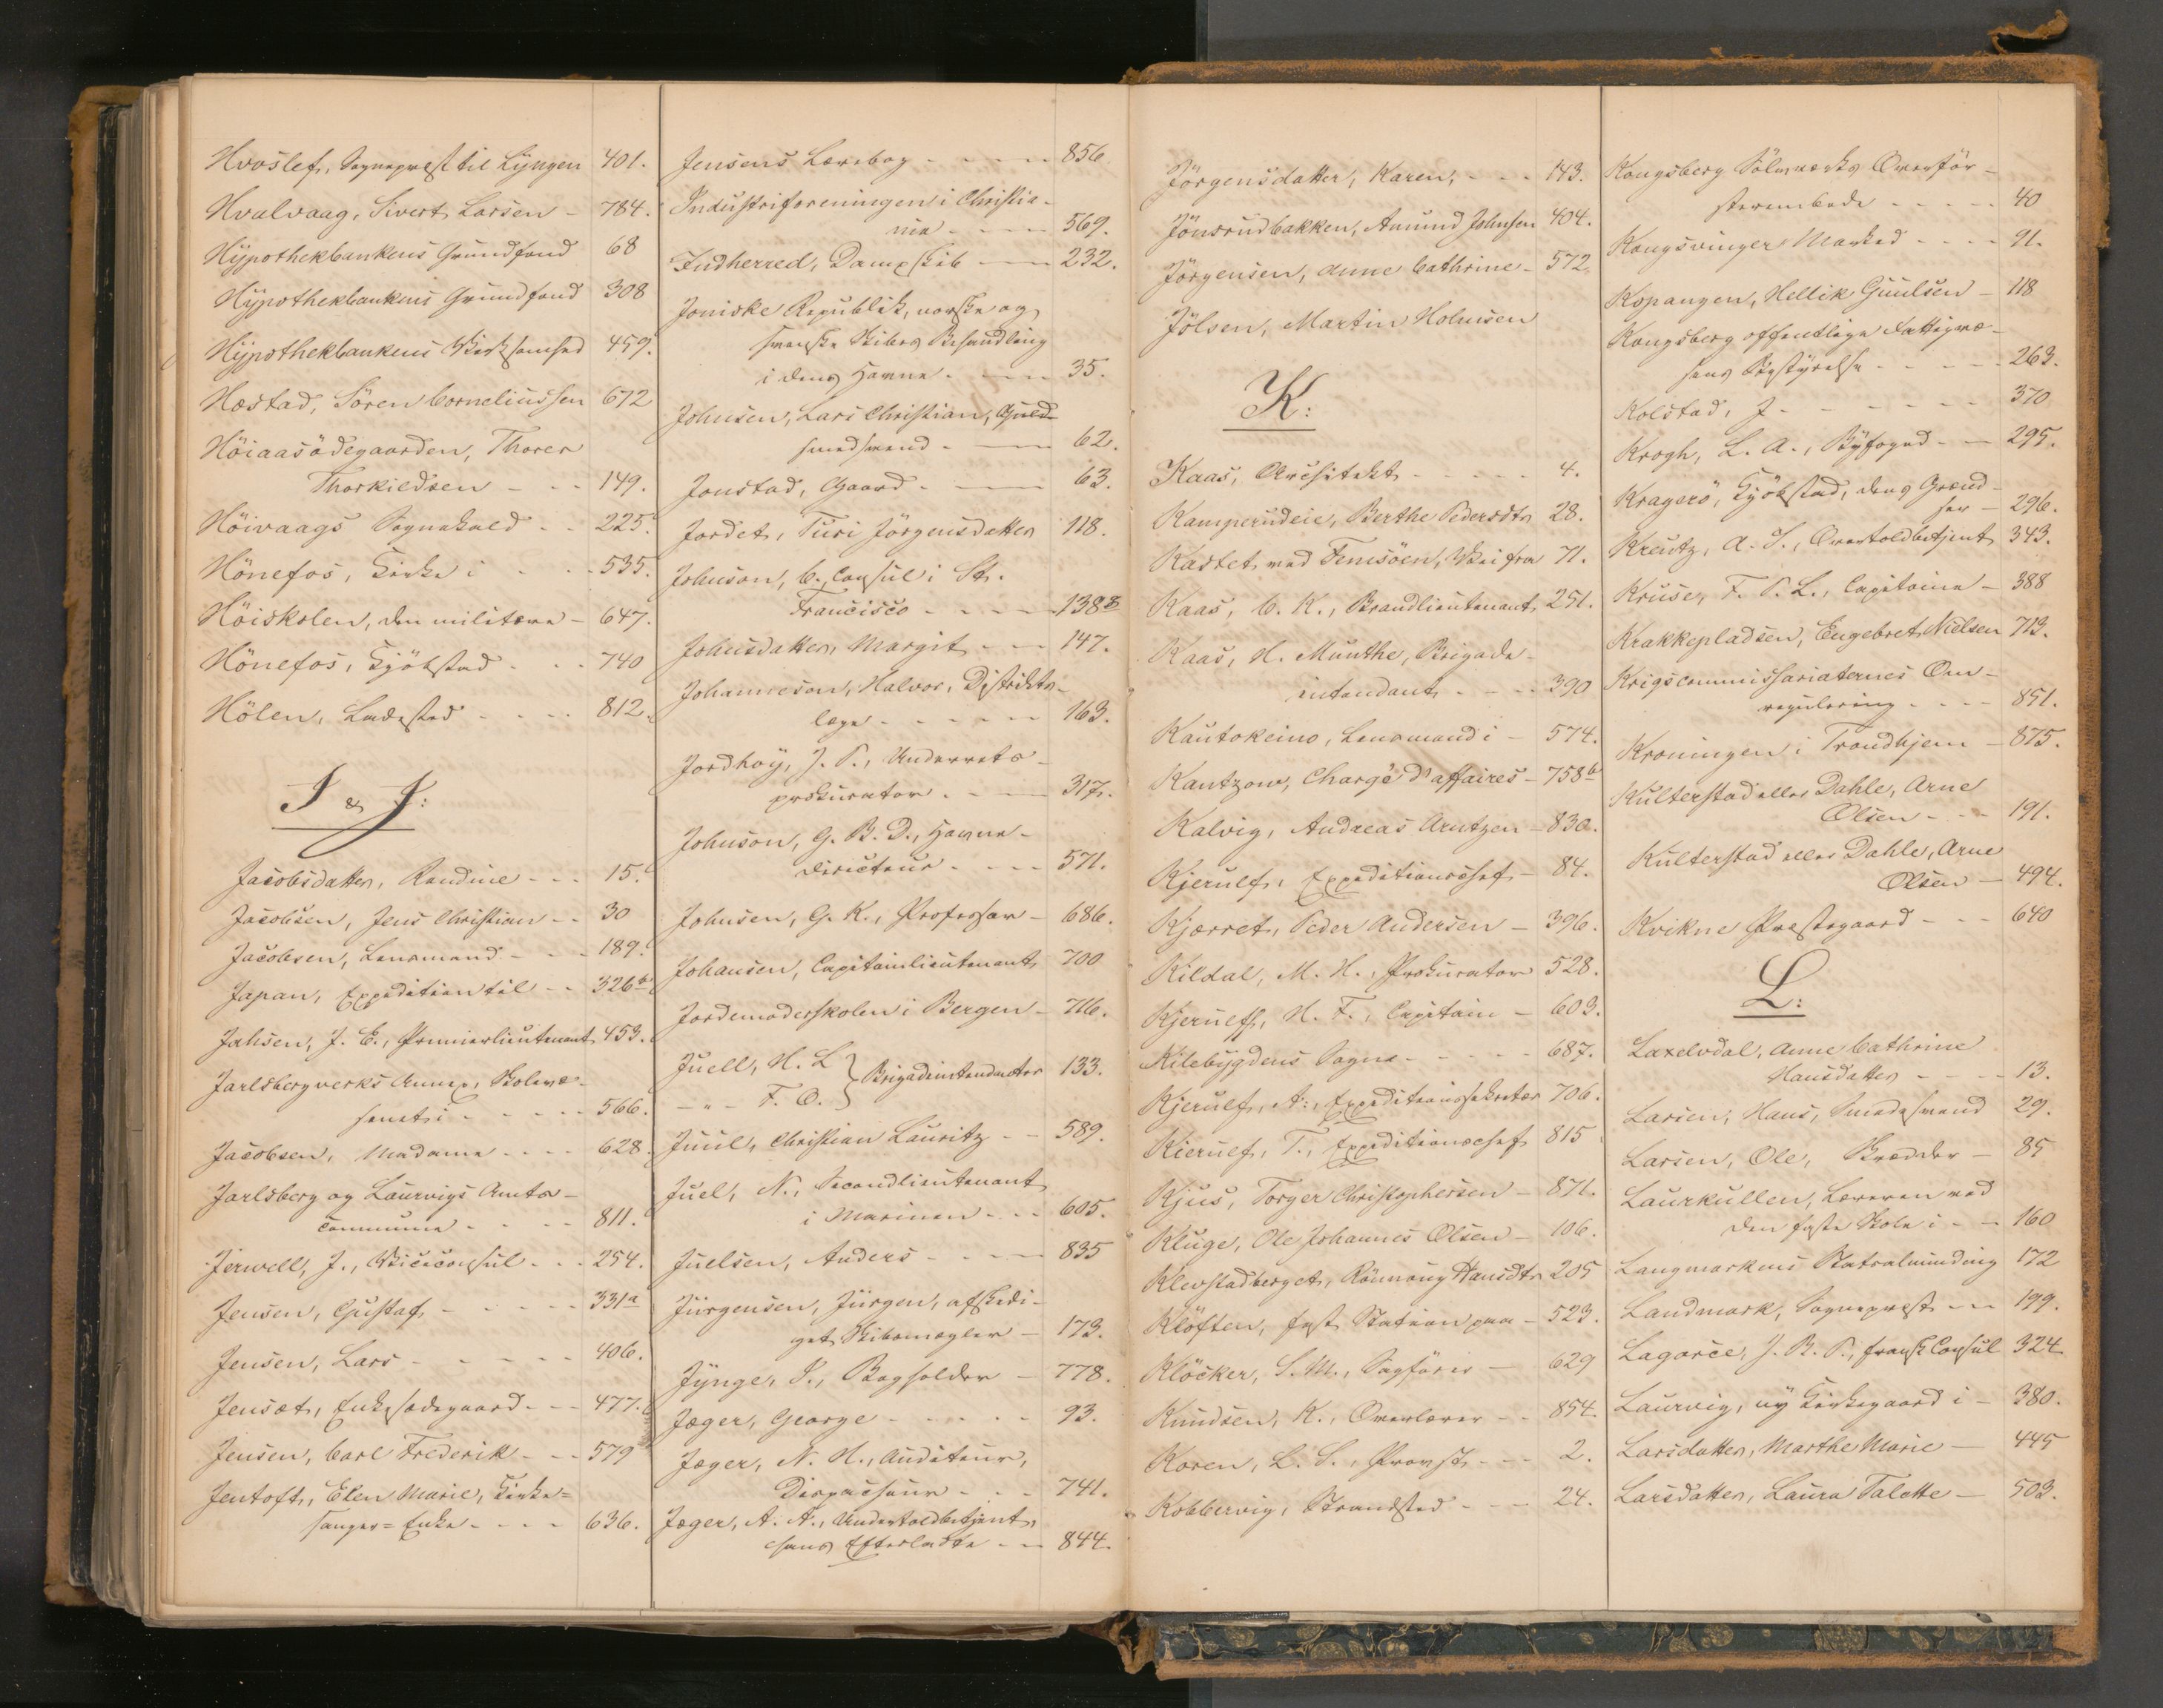 Hvoslef, Sognepræst til Lyngen 401.
Hvalvaag, Sivert Larsen - 784.
Hypothekbankens Grundfond 68
Hypothekbankens Grundfond 308
Hypothekbankens Virksomhed 459.
Hæstad, Sören Corneliussen 672
Höiaasödegaarden, Thorer
Thorkildsen - - - 149.
Höivaags Sognekald - - 225.
Hönefos, Kirke i - - - 535.
Höiskolen, den militære - 647.
Hönefos, Kjöbstad - - - 740
Hölen, Ladested - - - - 812.
I & J:
Jacobsdatter, Randine - - - 15.
Jacobsen, Jens Christian - - 30
Jacobsen, Lensmand - - - 189.
Japan, Expedition til - - 326b
Jahsen, J. E., Premierlieutenant 453.
Jarlsbergverks Annex, Skolevæ-
senet i - - - - - 566.
Jacobsen, Madame - - - - 628.
Jarlsberg og Laurvigs Amts-
commune - - - - 811.
Jerwell, J., Viceconsul - - - 254.
Jensen, Gustaf - - - - - 331a
Jensen, Lars - - - - - 406.
Jensæt, Enkesædegaard - - - 477.
Jensen, Carl Frederik - - - 579
Jentoft, Elen Marie, Kirke=
sanger=Enke - - - - 636.
Jensens Lærebog - - - - 856
Industriforeningen i Christia-
nia - - - - 569.
Indherred, Dampskib - - - 232.
Joniske Republik, norske og
svenske Skibes Behandling
i dens Havne - - - 35.
Johnsen, Lars Christian, Guld-
smedsvend - - - 62.
Jonstad, Gaard - - - 63.
Jordet, Turi Jörgensdatter 118.
Johnson, C., Consul i St.
Francisco - - - - 138B
Johnsdatter, Margit - - - 147.
Johanneson, Halvor, Distrikts-
læge - - - - - - 163.
Jordhoy, J. P., Underrets-
prokurator - - - - 317.
Johnson, G. B. D., Havne-
directeur - - - - 571.
Johnsen, G. K., Professor - 686.
Johansen, Capitainlieutenant 700
Jordemoderskolen i Bergen - 716.
Juell, H. L } Brigadeintendanter 133.
- " - F. O.
Juul, Christian Lauritz - - 589.
Juel, N., Secondlieutenant
i Marinen - - - 605.
Juelsen, Anders - - - - 835
Jürgensen, Jürgen, afskedi-
get Skibsmægler - 173.
Jynge, P., Bogholder - 778.
Jæger, George - - - - - 93.
Jæger, N. H., Auditeur,
Dispacheur - - - 741.
Jæger, A. A., Undertoldbetjent,
hans Efterladte - - 844.
Jörgensdatter, Karen, - - - 143.
Jönsrudbakken, Amund Johnsen 404.
Jörgensen, Anne Cathrine - 572.
Jölsen, Martin Holmsen
K:
Kaas, Architekt - - - - - 4.
Kamperudeie, Berthe Pedersdtr 28.
Kastet ved Femsöen, Vei fra 71.
Kaas, C. K., Brandlieutenant 251.
Kaas, H. Munthe, Brigade-
intendant - - - - 390
Kautokeino, Lensmand i - 574.
Kantzow, Chargé d'affaires - 758b
Kalvig, Andreas Arntzen - 830.
Kjerulf, Expeditionschef - 84.
Kjærret, Peder Andersen - 396.
Kildal, M. H., Prokurator 528.
Kjerulff, H. F., Capitain - 603.
Kilebygdens Sogn - - - - - 687.
Kjerulf, A., Expeditionssekretær 706.
Kierulf, T., Expeditionschef 815
Kjus, Torger Christophersen - 871.
Kluge, Ole Johannes Olsen - 106.
Klevstadberget, Rönnaug Hansdtr 205
Klöften, fast Station paa - 523.
Klöcker, S. M., Sagförer - 629
Knudsen, K., Overlærer - - 854.
Koren, L. S., Provst - - - 2.
Kobbervig, Strandsted - - - 24.
Kongsberg Sölvværks Overför-
sterembede - - - - - 40
Kongsvinger Marked - - - - 91.
Kopangen, Hellik Guulsen - 118
Kongsberg offentlige Fattigvæ-
sens Bestyrelse - - - - - 263.
Kolstad, J - - - - - - - 370
Krogh, L. A., Byfoged - - 295.
Kragerö, Kjöbstad, dens Grænd-
ser - 296.
Kreutz, A. J., Overtoldbetjent 343.
Kruse, F. P. L., Capitaine - 388
Krakkepladsen, Engebret Nielsen 713.
Krigscommissariaternes Om-
regulering - - - - 851.
Kroningen i Trondhjem - 875.
Kulterstad eller Dahle, Arne
Olsen - - - 191.
Kulterstad eller Dahle, Arne
Olsen - 494.
Kvikne Præstegaard - - - 640
L:
Laxelvdal, Anne Cathrine
Hansdatter - - - - 13.
Larsen, Hans, Smedesvend 29.
Larsen, Ole, Skrædder - 85
Laurkullen, Læreren ved
den faste Skole i - - 160
Langmarkens Matralmyndig 172
Landmark, Sognepræst - - - 199.
Lagarce, J. B. P., fransk Consul 324
Laurvig, ny Kirkegaard i - 380.
Larsdatter, Marthe Marie - 445
Larsdatter, Laura Talette - 503.